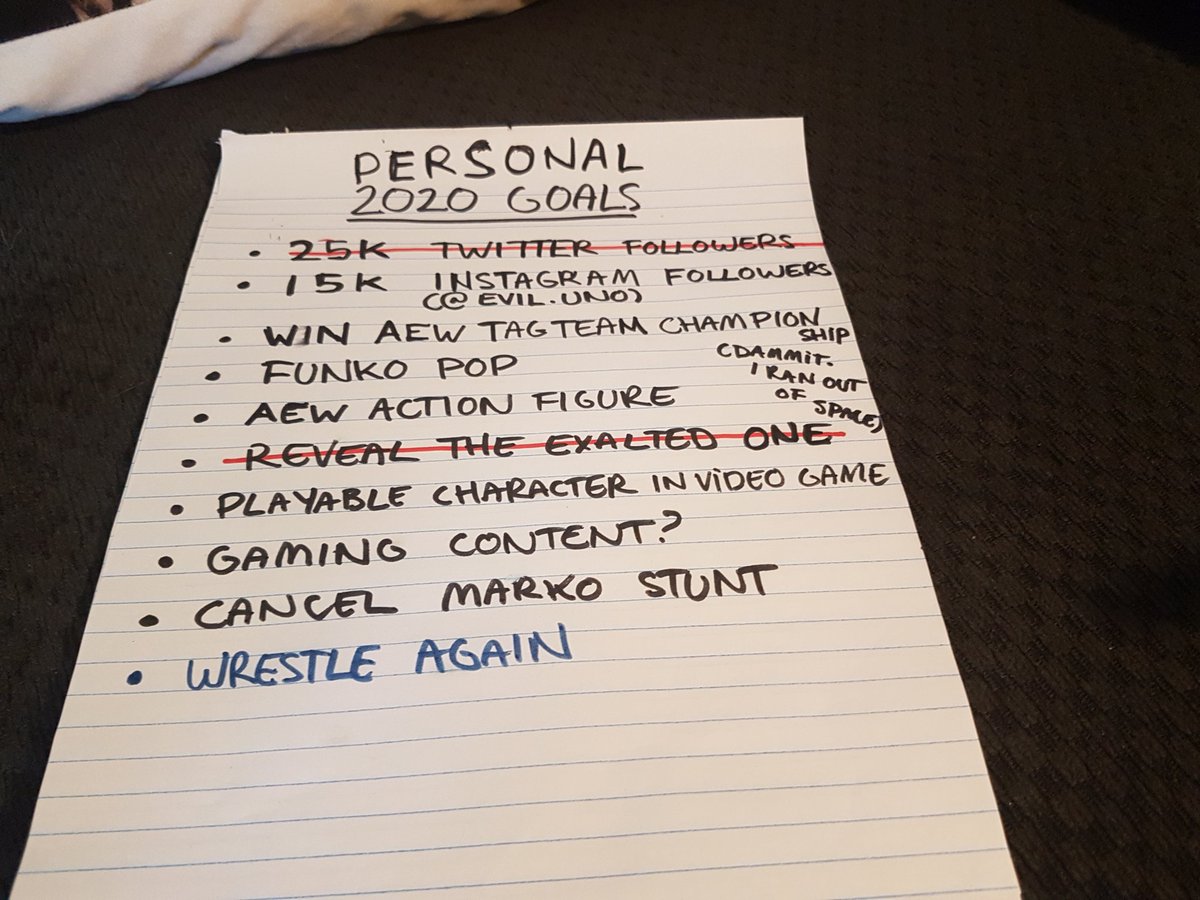 PERSONAL
2020 GOALS
• 25K TWITTER FOLLOWERS
• 15K INSTAGRAM FOLLOWERS
(@EVIL.UNO)
• WIN AEW TAG TEAM CHAMPION
SHIP
(DAMMIT.
I RAN OUT
OF
SPACE)
• FUNKO POP
• AEW ACTION FIGURE
• REVEAL THE EXALTED ONE
• PLAYABLE CHARACTER IN VIDEO GAME
• GAMING CONTENT?
• CANCEL MARKO STUNT
• WRESTLE AGAIN